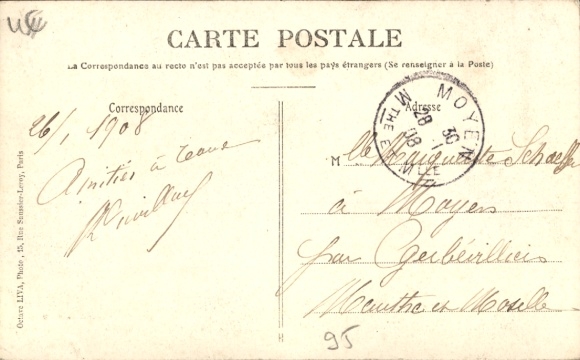 CARTE POSTALE
La Correspondance au recto n'est pas acceptée par tous les pays étrangers (Se renseigner à la Poste)
Correspondance
Adresse
26/1 1908
Amitiés à tous
MOYEN
28 - 1
08
MTHE E MLLE
Mlle Marguerite
à Moyen
par Gerbéviller
Meurthe et Moselle
95
Octave LIVA, Photo, 15, Rue Saussier-Leroy, Paris